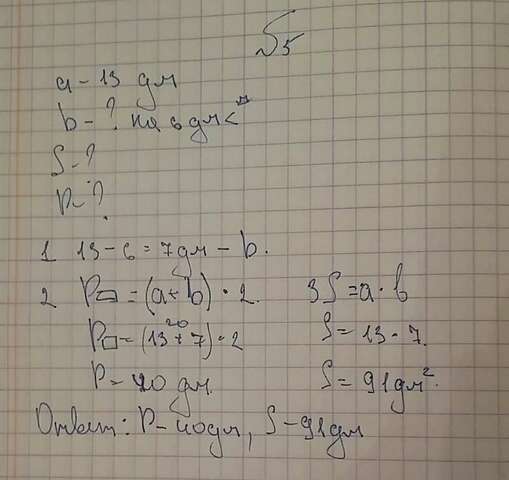 №5
a - 13 дм
b - ? на 6 дм <
S - ?
P - ?
1 13 - 6 = 7 дм - b.
2 P▭ = (a + b) · 2.
P▭ = (13 + 7) · 2
20
P = 40 дм.
3 S = a · b
S = 13 · 7.
S = 91 дм².
Ответ: P - 40 дм, S - 91 дм